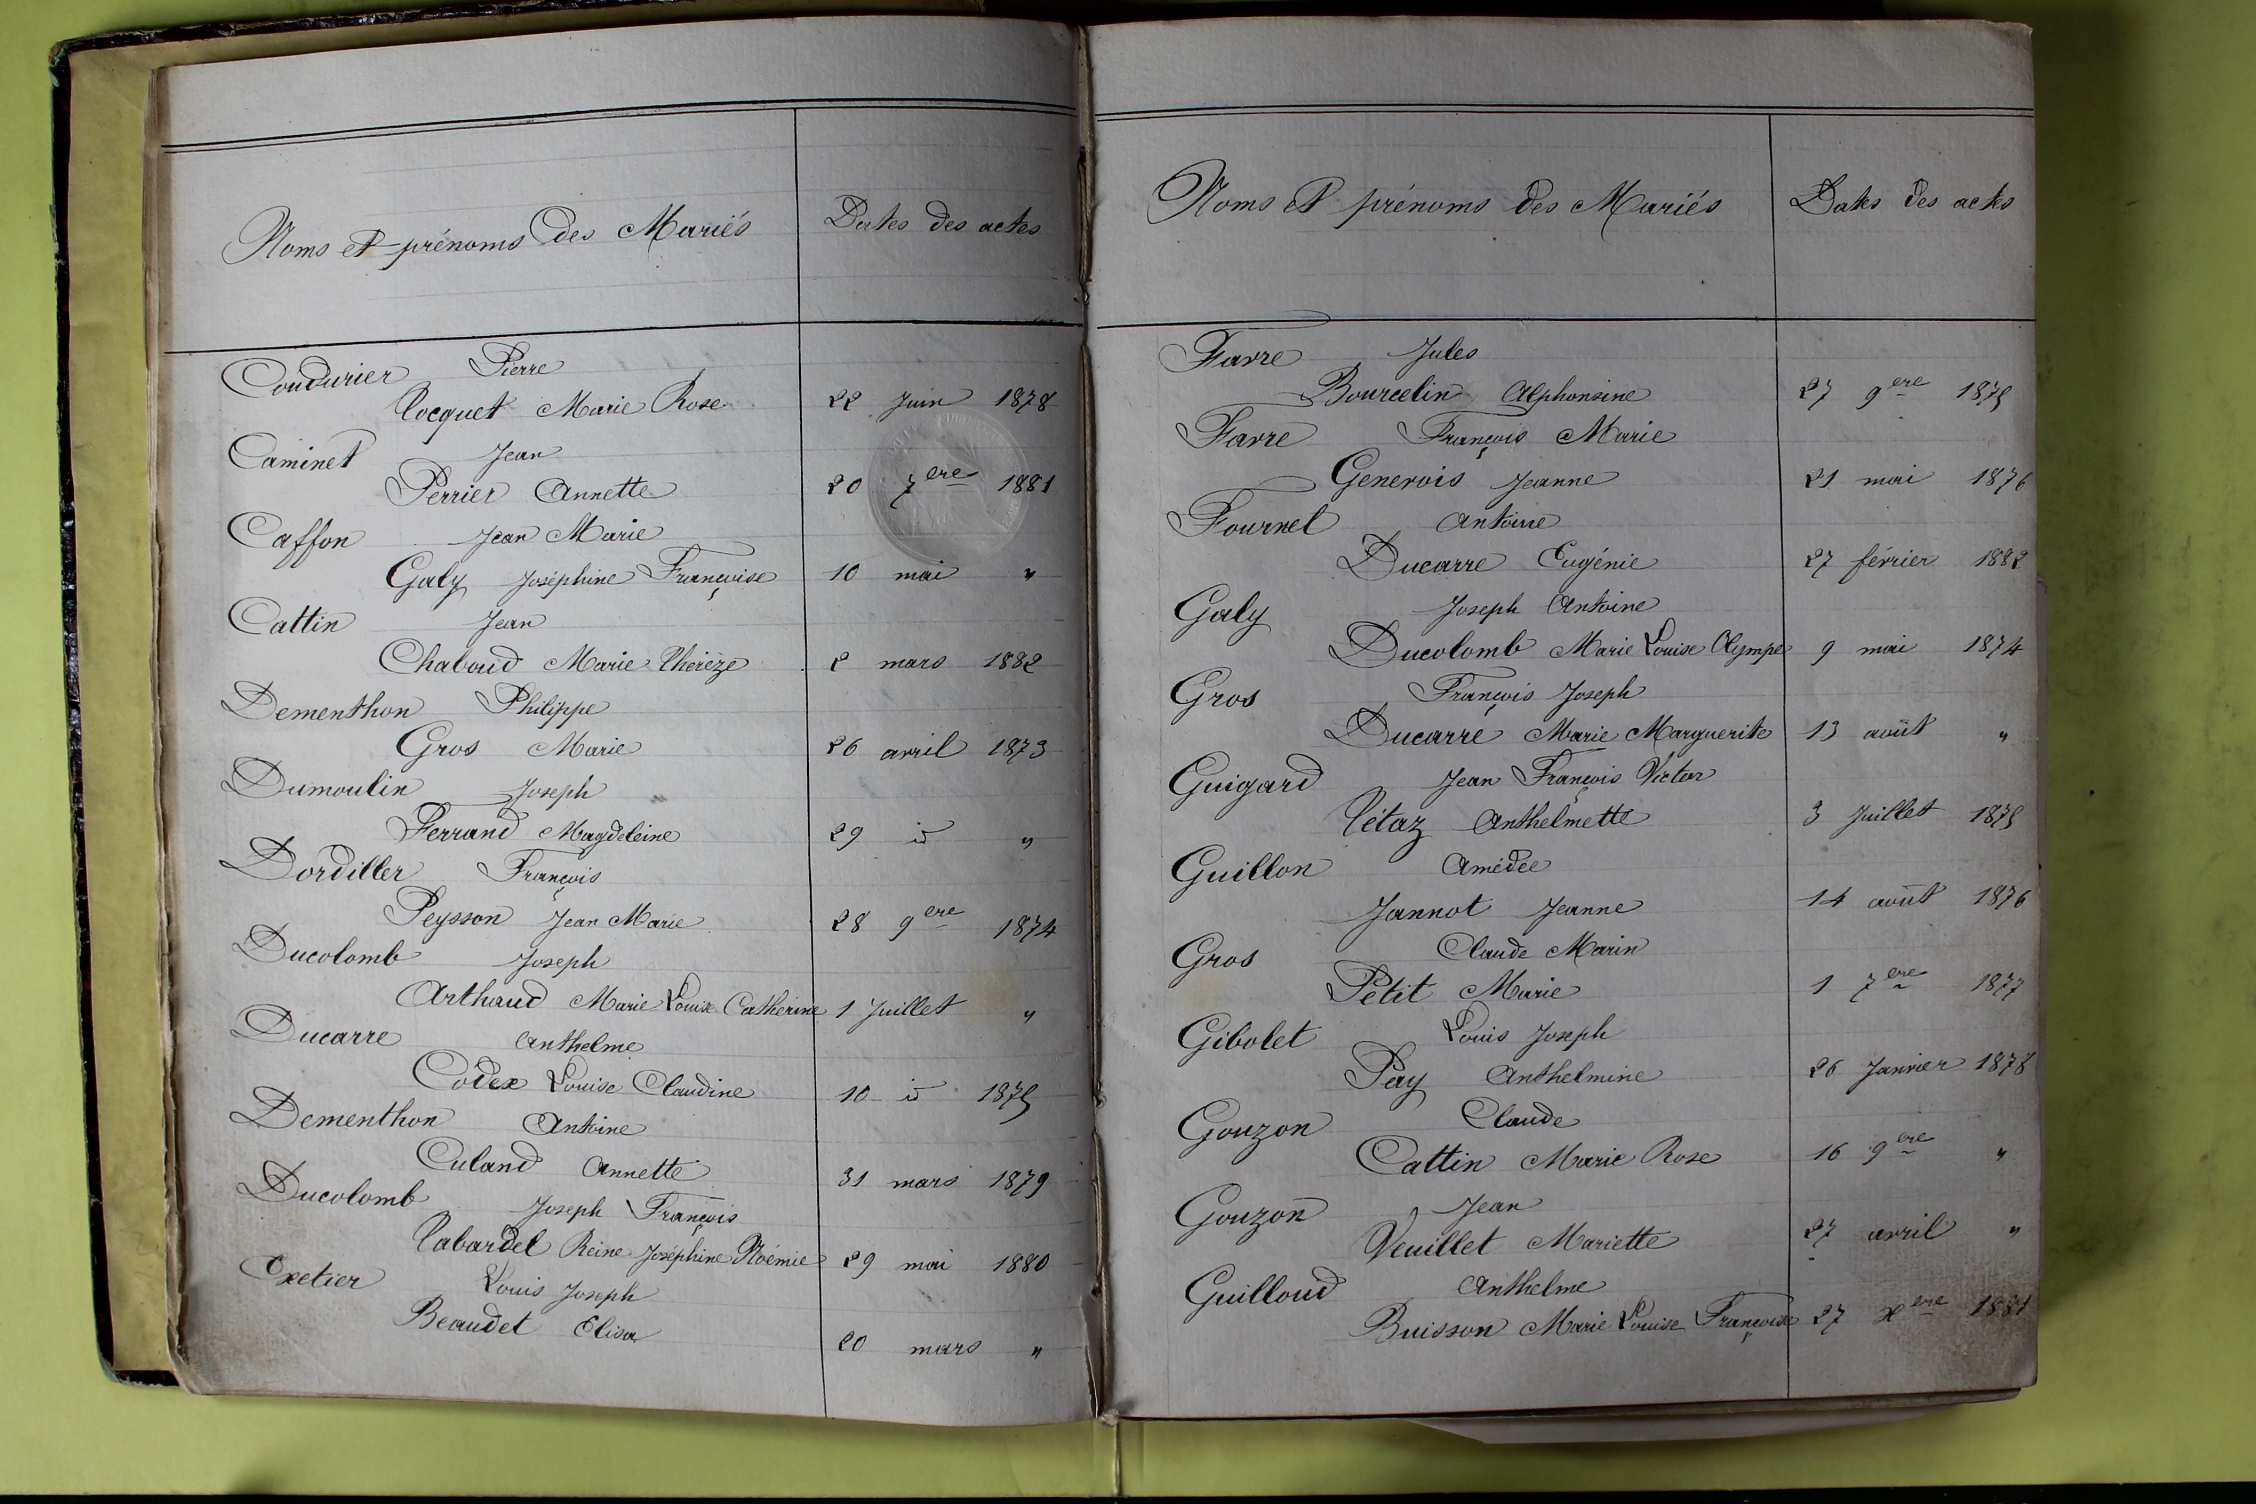 Noms et prénoms des Mariés Dates des actes
Coudurier Pierre
Cocquet Marie Rose 22 Juin 1878
Caminet Jean
Perrier Annette 20 7ere 1881
Caffon Jean Marie
Galy Joséphine Françoise 10 mai "
Cattin Jean
Chaboud Marie Thérèze 2 mars 1882
Dementhon Philippe
Gros Marie 26 avril 1873
Dumoulin Joseph
Ferrand Magdeleine 29 id "
Dordiller François
Peysson Jean Marie 28 9ere 1874
Ducolomb Joseph
Arthaud Marie Louise Catherine 1 Juillet "
Ducarre Anthelme
Codex Louise Claudine 10 id 1875
Dementhon Antoine
Culand Annette 31 mars 1879
Ducolomb Joseph François
Tabardel Reine Joséphine Noémie 29 mai 1880
Exetier Louis Joseph
Beaudet Elisa 20 mars "
Noms et prénoms des Mariés Dates des actes
Favre Jules
Bourcelin Alphonsine 27 9ere 1875
Favre François Marie
Genevois Jeanne 21 mai 1876
Fournel Antoine
Ducarre Eugénie 27 février 1882
Galy Joseph Antoine
Ducolomb Marie Louise Olympe 9 mai 1874
Gros François Joseph
Ducarré Marie Marguerite 13 août "
Guigard Jean François Victor
Tétaz Anthelmette 3 Juillet 1875
Guillon Amédée
Jannot Jeanne 14 août 1876
Gros Claude Marin
Petit Marie 1 7ere 1877
Gibolet Louis Joseph
Pay Anthelmine 26 Janvier 1878
Gouzon Claude
Cattin Marie Rose 16 9ere "
Gouzon Jean
Veuillet Mariette 27 avril "
Guilloud Anthelme
Buisson Marie Louise Françoise 27 xere 1881